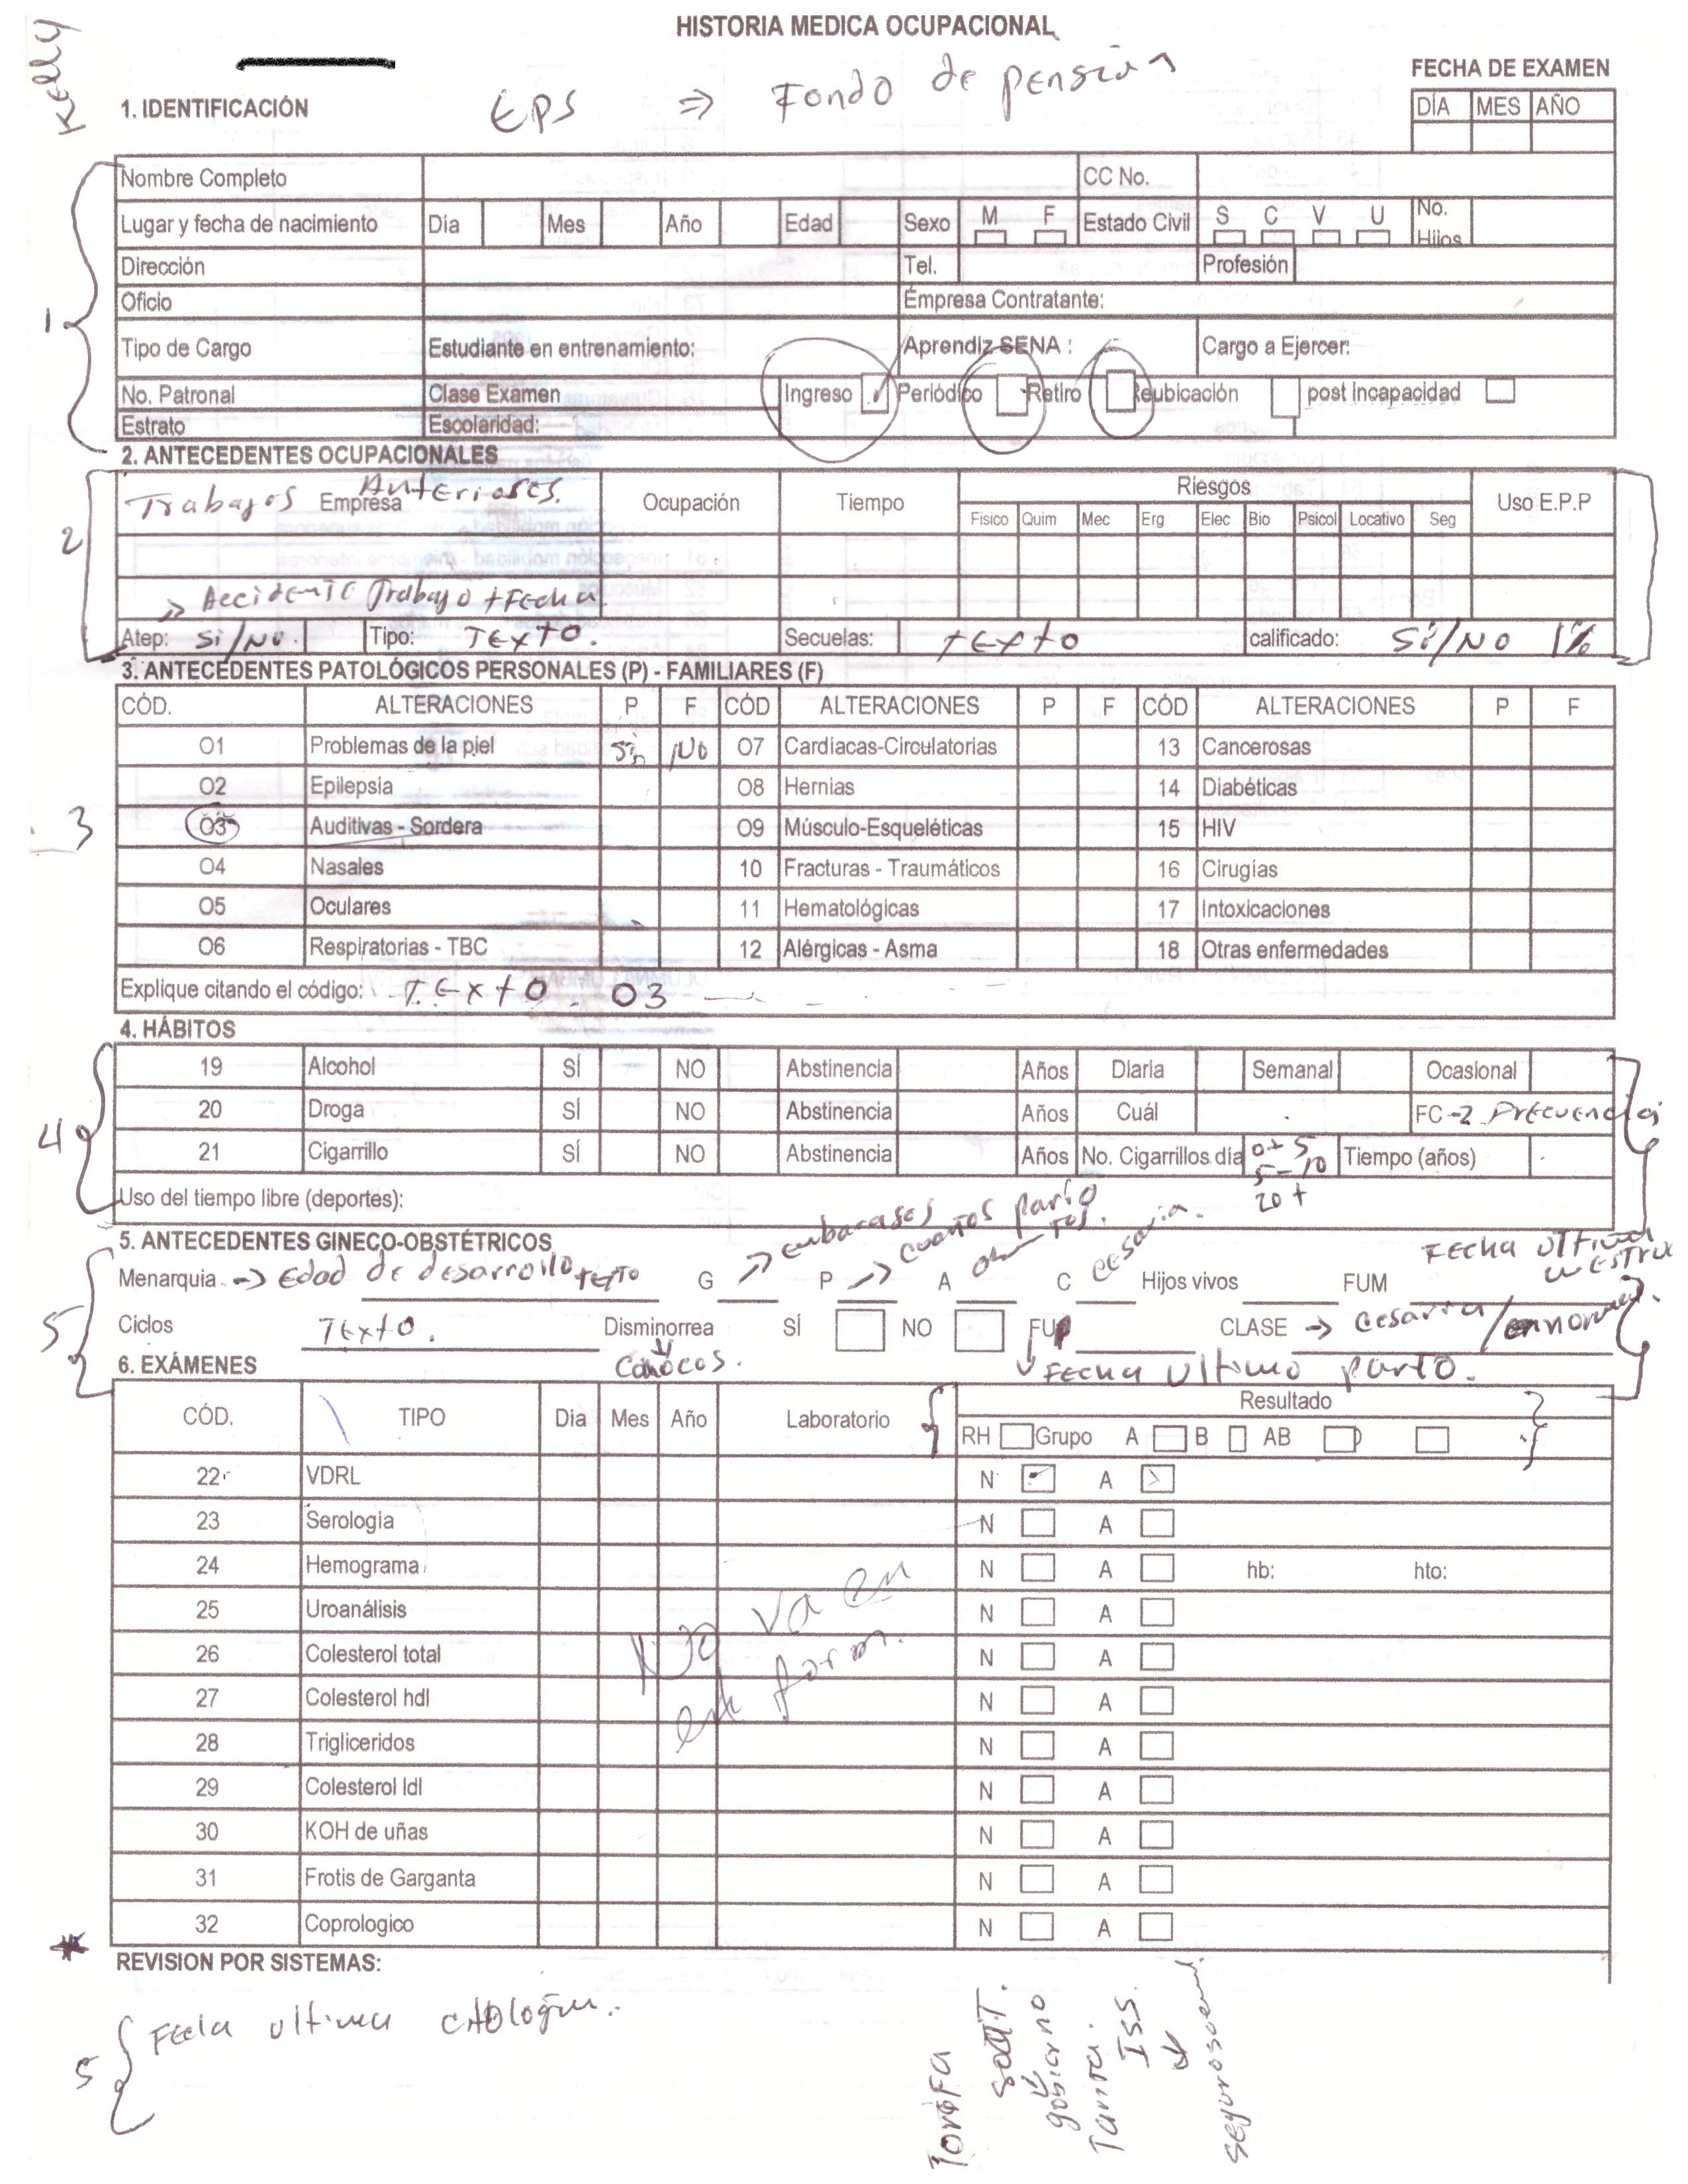 HISTORIA MEDICA OCUPACIONAL
Kelly
FECHA DE EXAMEN
1. IDENTIFICACIÓN
EPS ⇒ Fondo de pensión
DÍA MES AÑO
1
Nombre Completo CC No.
Lugar y fecha de nacimiento Día Mes Año Edad Sexo M F Estado Civil S C V U No. Hijos
Dirección Tel. Profesión
Oficio Empresa Contratante:
Tipo de Cargo Estudiante en entrenamiento: Aprendiz SENA : Cargo a Ejercer:
No. Patronal Clase Examen Ingreso ✓ Periódico Retiro Reubicación post incapacidad
Estrato Escolaridad:
2. ANTECEDENTES OCUPACIONALES
2
Trabajos Anteriores.
Empresa Ocupación Tiempo Riesgos Uso E.P.P
Fisico Quim Mec Erg Elec Bio Psicol Locativo Seg
⇒ Accidente Trabajo + Fecha.
Atep: Si/No. Tipo: TExTO. Secuelas: TExto calificado: Si/No 1%
3. ANTECEDENTES PATOLÓGICOS PERSONALES (P) - FAMILIARES (F)
3
CÓD. ALTERACIONES P F CÓD ALTERACIONES P F CÓD ALTERACIONES P F
O1 Problemas de la piel Si No O7 Cardiacas-Circulatorias 13 Cancerosas
O2 Epilepsia O8 Hernias 14 Diabéticas
O3 Auditivas - Sordera O9 Músculo-Esqueléticas 15 HIV
O4 Nasales 10 Fracturas - Traumáticos 16 Cirugías
O5 Oculares 11 Hematológicas 17 Intoxicaciones
O6 Respiratorias - TBC 12 Alérgicas - Asma 18 Otras enfermedades
Explique citando el código: TExtO. 03
4. HÁBITOS
4
19 Alcohol SÍ NO Abstinencia Años Diaria Semanal Ocasional
20 Droga SÍ NO Abstinencia Años Cuál FC → Frecuencia
21 Cigarrillo SÍ NO Abstinencia Años No. Cigarrillos día 0 + 5 5 - 10 20 + Tiempo (años)
Uso del tiempo libre (deportes):
5. ANTECEDENTES GINECO-OBSTÉTRICOS
5
Menarquia → Edad de desarrollo texto G → embarasos P → cuantos parto A C cesaria. Hijos vivos FUM Fecha ultima
Ciclos TExtO. Disminorrea SÍ NO FUP CLASE → cesarea /
colicos. Fecha Ultimo parto.
6. EXÁMENES
CÓD. TIPO Día Mes Año Laboratorio Resultado
RH Grupo A B AB O
22 VDRL N A
23 Serología N A
24 Hemograma N A hb: hto:
25 Uroanálisis N A
26 Colesterol total N A
27 Colesterol hdl N A
28 Trigliceridos N A
29 Colesterol ldl N A
30 KOH de uñas N A
31 Frotis de Garganta N A
32 Coprologico N A
No va en
este form.
REVISION POR SISTEMAS:
5
Fecha ultima citologia.
gobierno
ISS.